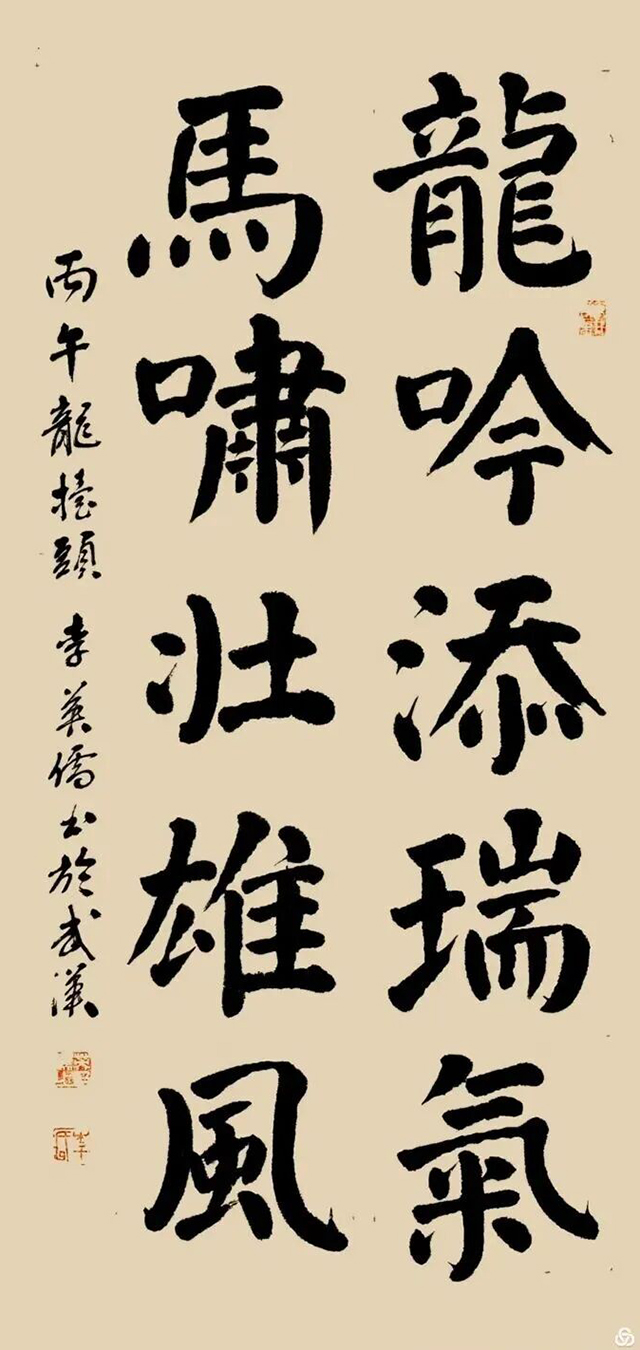 龍吟添瑞氣
馬嘯壯雄風
丙午龍擡頭 李英儒书於武漢